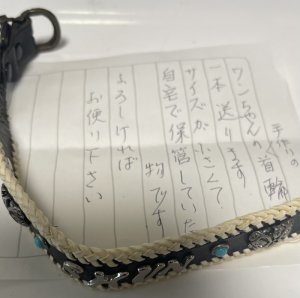 ワンちゃんの首輪
一本送ります
サイズが小さくて
自宅で保管していた
物です
よろしければ
お使い下さい